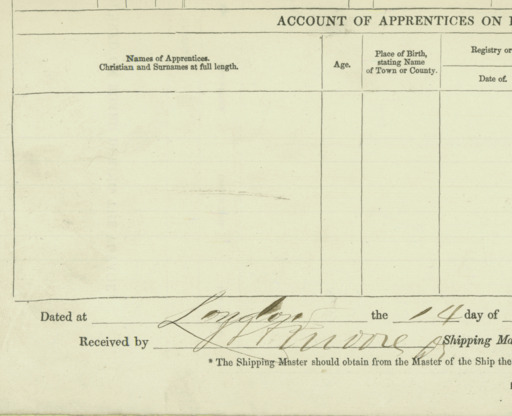 ACCOUNT OF APPRENTICES ON
Names of Apprentices.
Christian and Surnames at full length.
Age.
Place of Birth,
stating Name
of Town or County.
Registry or
Date of.
Dated at London the 14 day of
Received by Moore Shipping Ma
* The Shipping Master should obtain from the Master of the Ship the